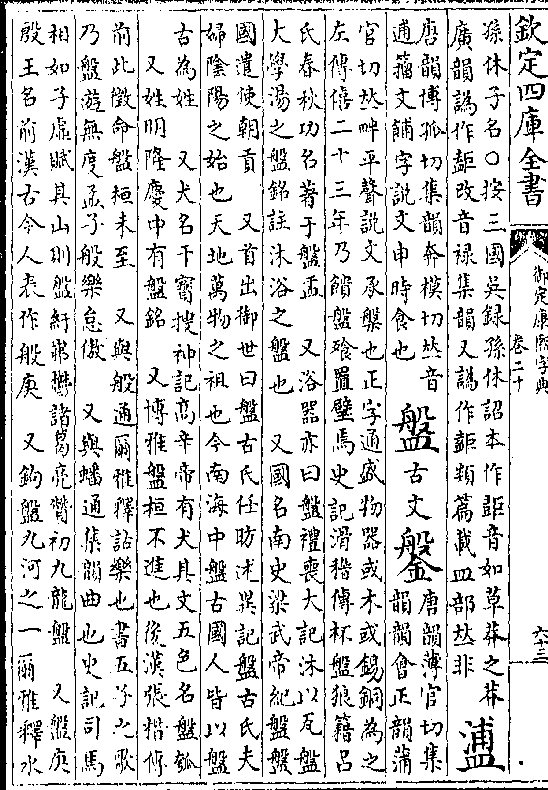 欽定四庫全書
御定康熙字典
卷二十
六十三
孫休子名〇按三國吳録孫休詔本作音如草莽之莽
廣韻譌作改音禄集韻又譌作類篇載皿部𠀤非
唐韻博孤切集韻奔模切𠀤音
逋籀文餔字說文申時食也
盤
古文鎜
唐韻薄官切集
韻韻會正韻蒲
官切𠀤畔平聲說文承槃也正字通盛物器或木或錫銅為之
左傳僖二十三年乃饋盤飱置璧焉史記滑稽傳杯盤狼籍吕
氏春秋功名著于盤盂 又浴器亦曰盤禮喪大記沐以瓦盤
大學湯之盤銘註沐浴之盤也 又國名南史梁武帝紀盤盤
國遣使朝貢 又首出御世曰盤古氏任昉述異記盤古氏夫
婦陰陽之始也天地萬物之祖也今南海中盤古國人皆以盤
古為姓 又犬名干寳搜神記高辛帝有犬其文五色名盤瓠
又姓明隆慶中有盤銘 又博雅盤桓不進也後漢張楷傳
前此徵命盤桓未至 又與般通爾雅釋詁樂也書五子之歌
乃盤遊無度孟子般樂怠傲 又與蟠通集韻曲也史記司馬
相如子虛賦其山則盤紆岪鬱諸葛亮贊初九龍盤 又盤庚
殷王名前漢古今人表作般庚 又鉤盤九河之一爾雅釋水